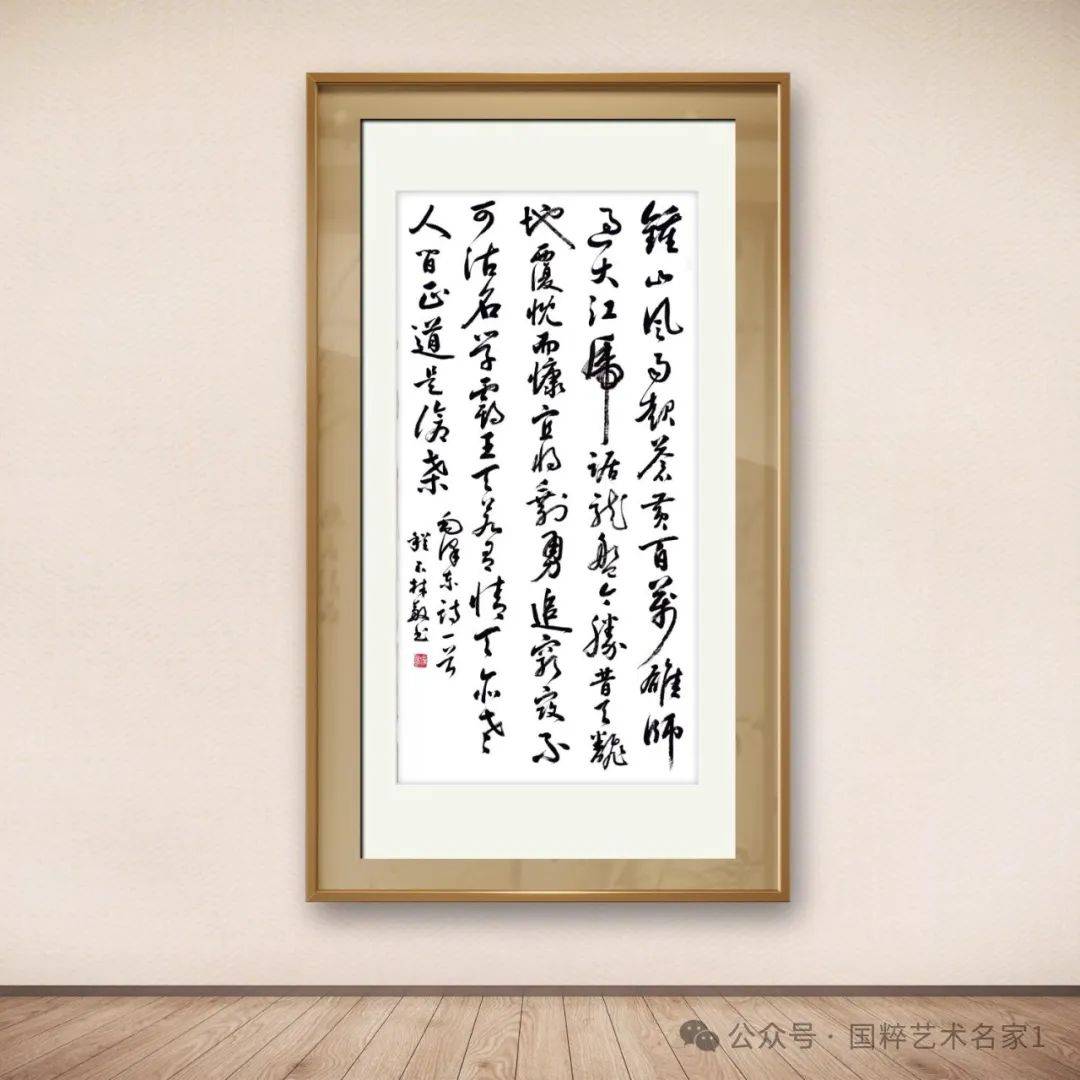 鍾山风雨起蒼黄百萬雄師
过大江虎踞龙盤今勝昔天翻
地覆慨而慷宜将剩勇追窮寇不
可沽名学霸王天若有情天亦老
人间正道是滄桑
毛泽东诗一首
林敏书
公众号 · 国粹艺术名家1